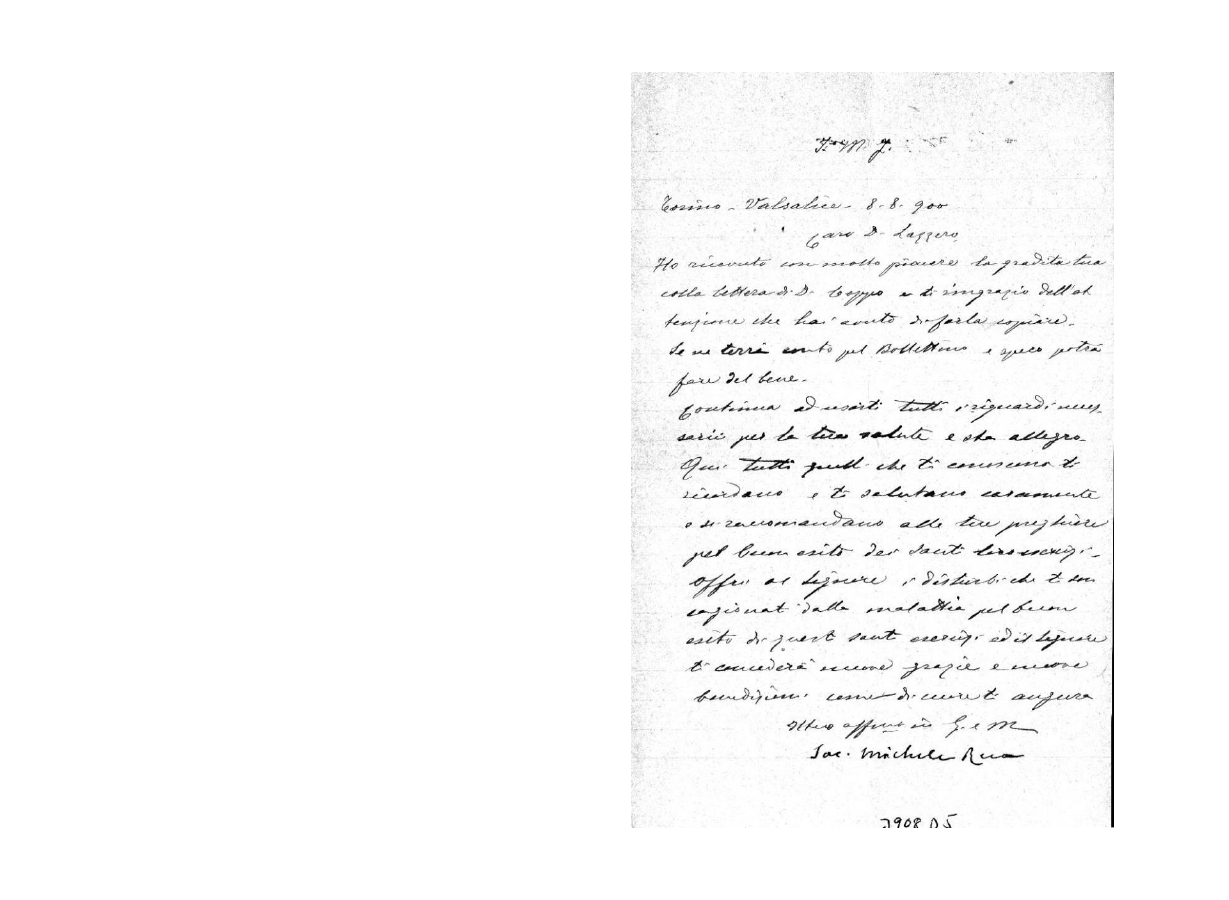 Torino - Valsalice - 8-8-900
Caro D. Lazzero,
Ho ricevuto con molto piacere la gradita tua
colla lettera di D. Coppo e ti ringrazio dell'at
tenzione che hai avuto di farla copiare.
Se ne terrà conto pel Bollettino e spero potrà
fare del bene.
Continua ad usarti tutti i riguardi neces
sarii per la tua salute e sta allegro.
Qui tutti quelli che ti conoscono ti
ricordano e ti salutano caramente
e si raccomandano alle tue preghiere
pel buon esito dei santi loro esercizi.
Offri al Signore i disturbi che ti son
cagionati dalla malattia pel buon
esito di questi santi esercizi ed il Signore
ti concederà nuove grazie e nuove
benedizioni come di cuore ti augura
Il tuo aff.mo in G. e M.
Sac. Michele Rua
3908 D5